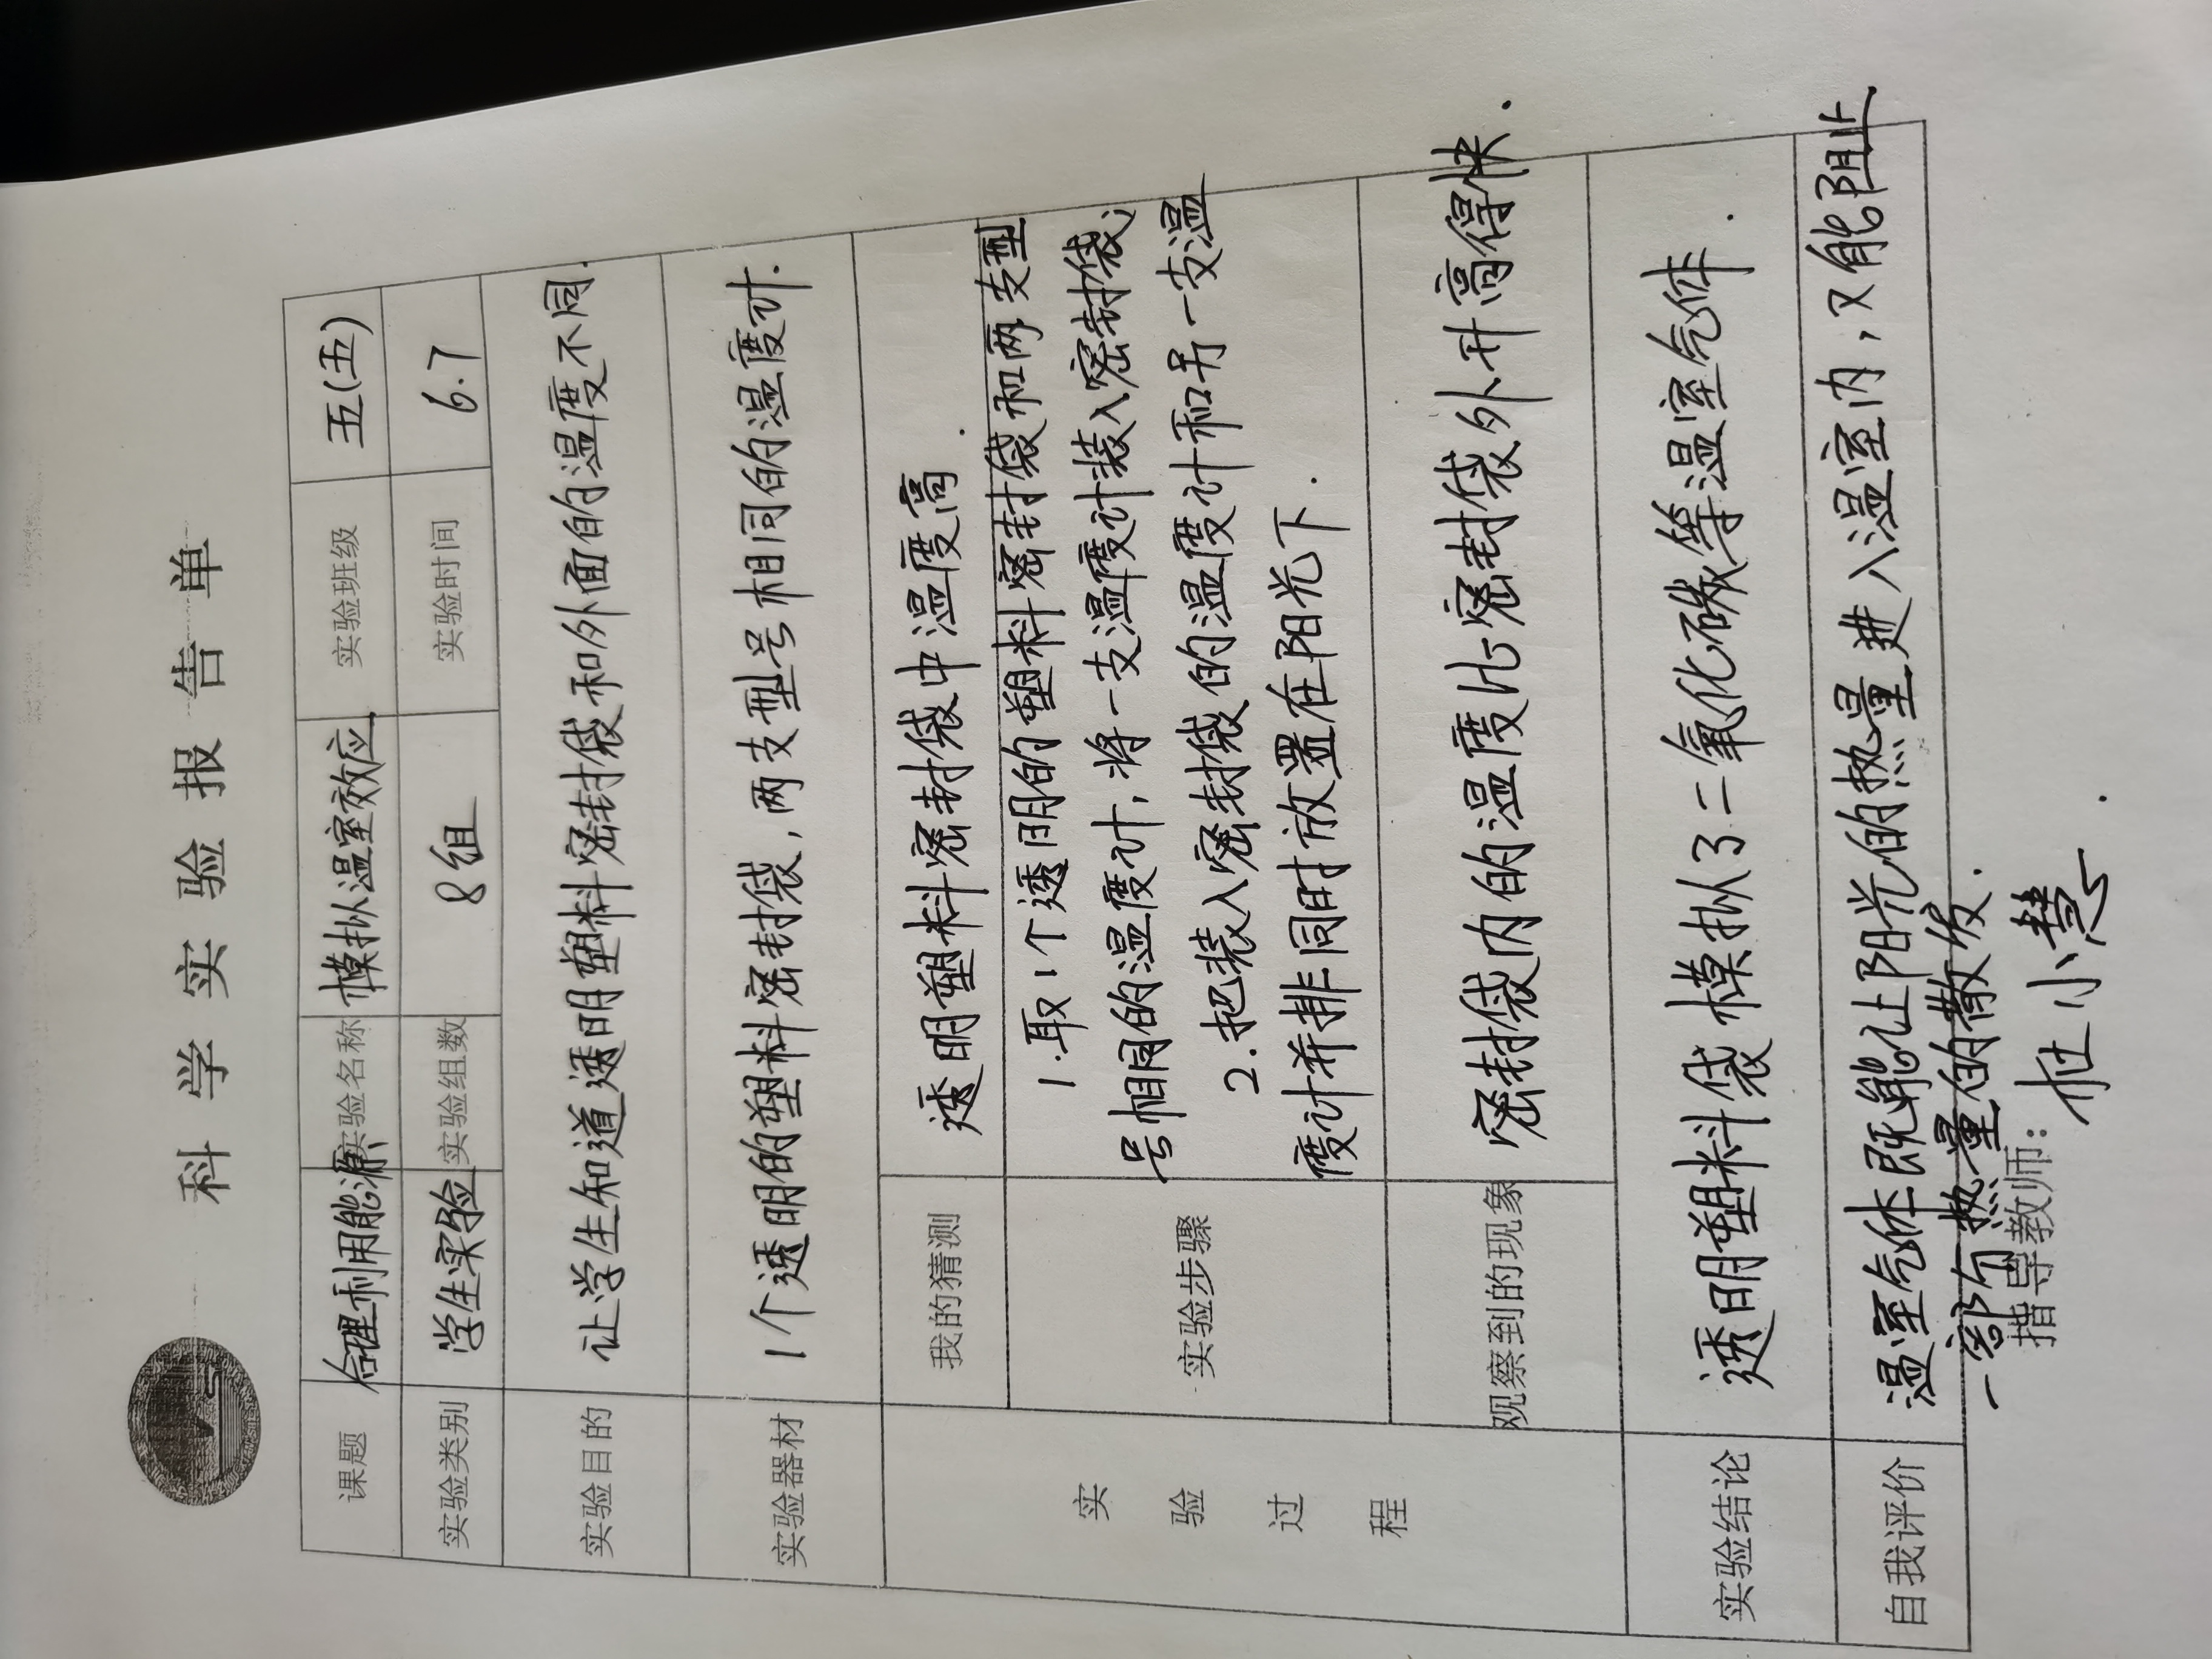 科学实验报告单
课题 合理利用能源 实验名称 模拟温室效应 实验班级 五(五)
实验类别 学生实验 实验组数 8组 实验时间 6.7
实验目的 让学生知道透明塑料密封袋和外面的温度不同.
实验器材 1个透明的塑料密封袋,两支型号相同的温度计.
实验过程
我的猜测 透明塑料密封袋中温度高.
实验步骤
1.取1个透明的塑料密封袋和两支型
号相同的温度计,将一支温度计装入密封袋.
2.把装入密封袋的温度计和另一支温
度计并排同时放置在阳光下.
观察到的现象 密封袋内的温度比密封袋外升高得快.
实验结论 透明塑料袋模拟了二氧化碳等温室气体.
自我评价 温室气体既能让阳光的热量进入温室内,又能阻止
一部分热量的散发.
指导教师: 小慧